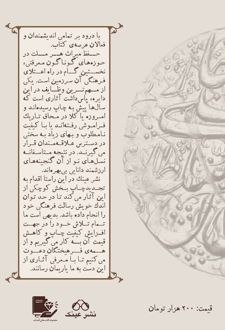 با درود بر تمامی اندیشمندان و
فعالان عرصه‌ی کتاب.
حفظ میراث هر ملت در
حوزه‌های گوناگون معرفتی،
نخستین گام در راه اعتلای
فرهنگی آن سرزمین است. یکی
از مهم‌ترین وظایف در این
دایره، پاس‌داشت آثاری است که
سال‌ها پیش به چاپ رسیده‌اند و
امروزه یا کلا در محاق تاریک
فراموشی رفته‌اند یا با کیفیت
نامطلوب و بهای زیاد به سختی
در دسترس علاقه‌مندان قرار
می‌گیرند. در نتیجه متاسفانه
نسل‌های نو از آن گنجینه‌های
ارزشمند دانایی بی‌بهره‌اند.
نشر عینک در این راستا اقدام به
تجدید چاپ بخش کوچکی از
این آثار می کند تا در حد توان
اندک خویش رسالت فرهنگی خود
را انجام داده باشد. بدیهی است ما
تمام تلاش خود را در جهت
افزایش کیفیت چاپ و کاهش
قیمت آن به کار می گیریم و از
همه‌ی فرهیختگان دعوت
می کنیم تا با معرفی آثاری از
این دست به ما یاریمان رسانند.
نشر عینک
قیمت: ۲۰۰ هزار تومان